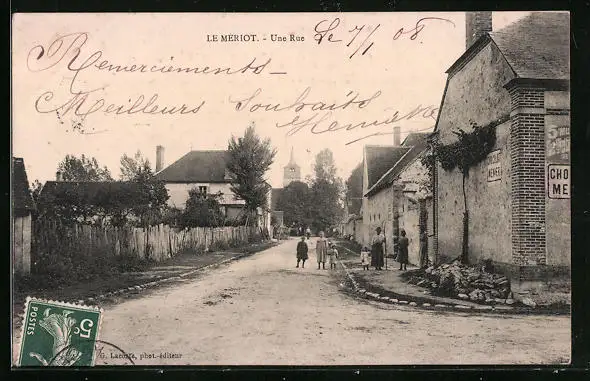 LE MÉRIOT. - Une Rue Le 7/1 08
Remerciements -
Meilleurs Souhaits
CHO
ME
POSTES 5c
phot.-éditeur